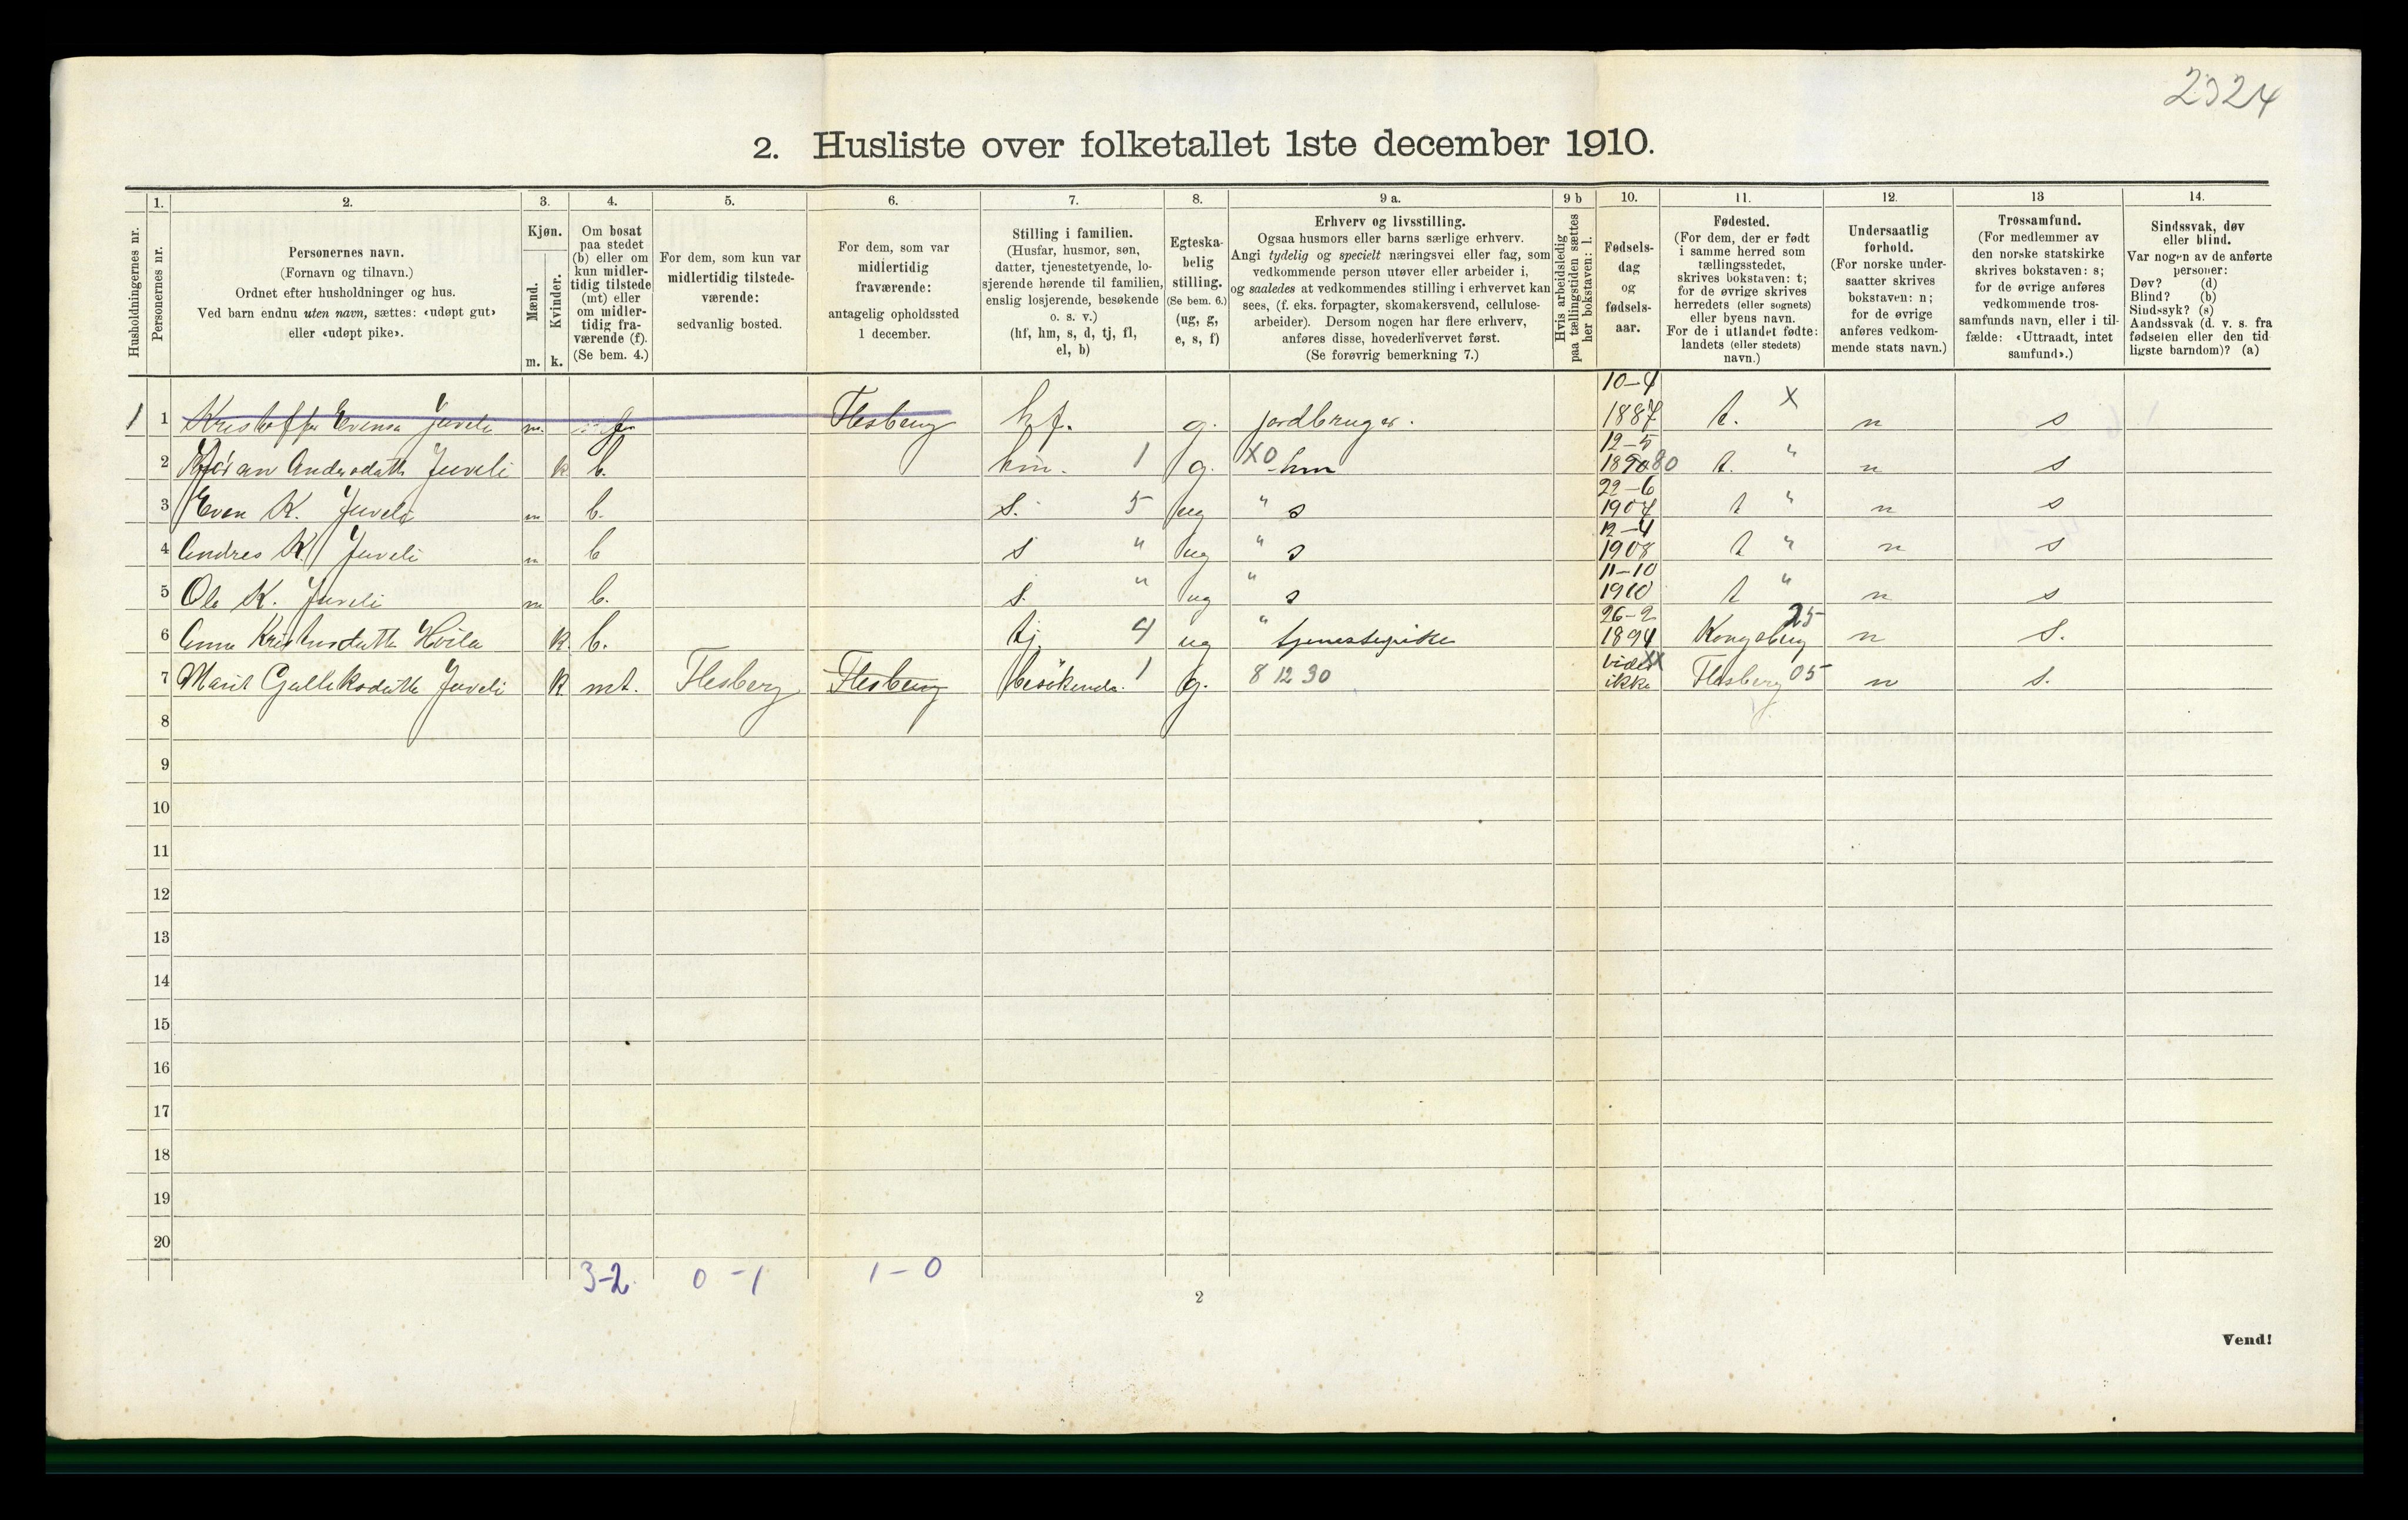 2324
2. Husliste over folketallet 1ste december 1910.
Husholdningernes nr.
1. Personernes nr.
2. Personernes navn.
(Fornavn og tilnavn.)
Ordnet efter husholdninger og hus.
Ved barn endnu uten navn, sættes: «udøpt gut»
eller «udøpt pike».
3. Kjøn.
Mænd. m.
Kvinder. k.
4. Om bosat
paa stedet
(b) eller om
kun midler-
tidig tilstede
(mt) eller
om midler-
tidig fra-
værende (f).
(Se bem. 4.)
5. For dem, som kun var
midlertidig tilstede-
værende:
sedvanlig bosted.
6. For dem, som var
midlertidig
fraværende:
antagelig opholdssted
1 december.
7. Stilling i familien.
(Husfar, husmor, søn,
datter, tjenestetyende, lo-
sjerende hørende til familien,
enslig losjerende, besøkende
o. s. v.)
(hf, hm, s, d, tj, fl,
el, b)
8. Egteska-
belig
stilling.
(Se bem. 6.)
(ug, g,
e, s, f)
9 a. Erhverv og livsstilling.
Ogsaa husmors eller barns særlige erhverv.
Angi tydelig og specielt næringsvei eller fag, som
vedkommende person utøver eller arbeider i,
og saaledes at vedkommendes stilling i erhvervet kan
sees, (f. eks. forpagter, skomakersvend, cellulose-
arbeider). Dersom nogen har flere erhverv,
anføres disse, hovederhvervet først.
(Se forøvrig bemerkning 7.)
9 b Hvis arbeidsledig
paa tællingstiden sættes
her bokstaven: l.
10. Fødsels-
dag
og
fødsels-
aar.
11. Fødested.
(For dem, der er født
i samme herred som
tællingsstedet,
skrives bokstaven: t;
for de øvrige skrives
herredets (eller sognets)
eller byens navn.
For de i utlandet fødte:
landets (eller stedets)
navn.)
12. Undersaatlig
forhold.
(For norske under-
saatter skrives
bokstaven: n;
for de øvrige
anføres vedkom-
mende stats navn.)
13 Trossamfund.
(For medlemmer av
den norske statskirke
skrives bokstaven: s;
for de øvrige anføres
vedkommende tros-
samfunds navn, eller i til-
fælde: «Uttraadt, intet
samfund».)
14. Sindssvak, døv
eller blind.
Var nogen av de anførte
personer:
Døv? (d)
Blind? (b)
Sindssyk? (s)
Aandssvak (d. v. s. fra
fødselen eller den tid
ligste barndom)? (a)
1 1 Kristoffer Evensen Juveli m. f. Flesberg h.f. g. jordbruger. 10-4 1887 t. X n s
2 Andersdatter Juveli k b. hm. 1 g. X0 hm 12-5 1890 80 t. " n s
3 Even K. Juveli m b. s. 5 ug " s 22-6 1907 t " n s
4 Andres K. Juveli m b s " ug " s 12-4 1908 t " n s
5 Ole K. Juveli m b. s. " ug " s 11-10 1910 t " n s
6 Anna Hvila k. b. tj. 4 ug " tjenestepike 26-2 1894 Kongsberg 25 n s.
7 Marit Gulleksdatter Juveli k mt. Flesberg Flesberg besökende. 1 g. 8 12 30 vides ikke XX Flesberg 05 n s.
8
9
10
11
12
13
14
15
16
17
18
19
20
3-2. 0-1 1-0
2
Vend!